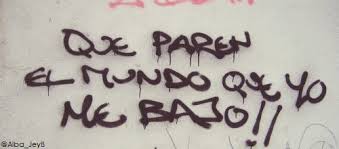 QUE PAREN
EL MUNDO QUE YO
ME BAJO!!
@Alba_Jey8